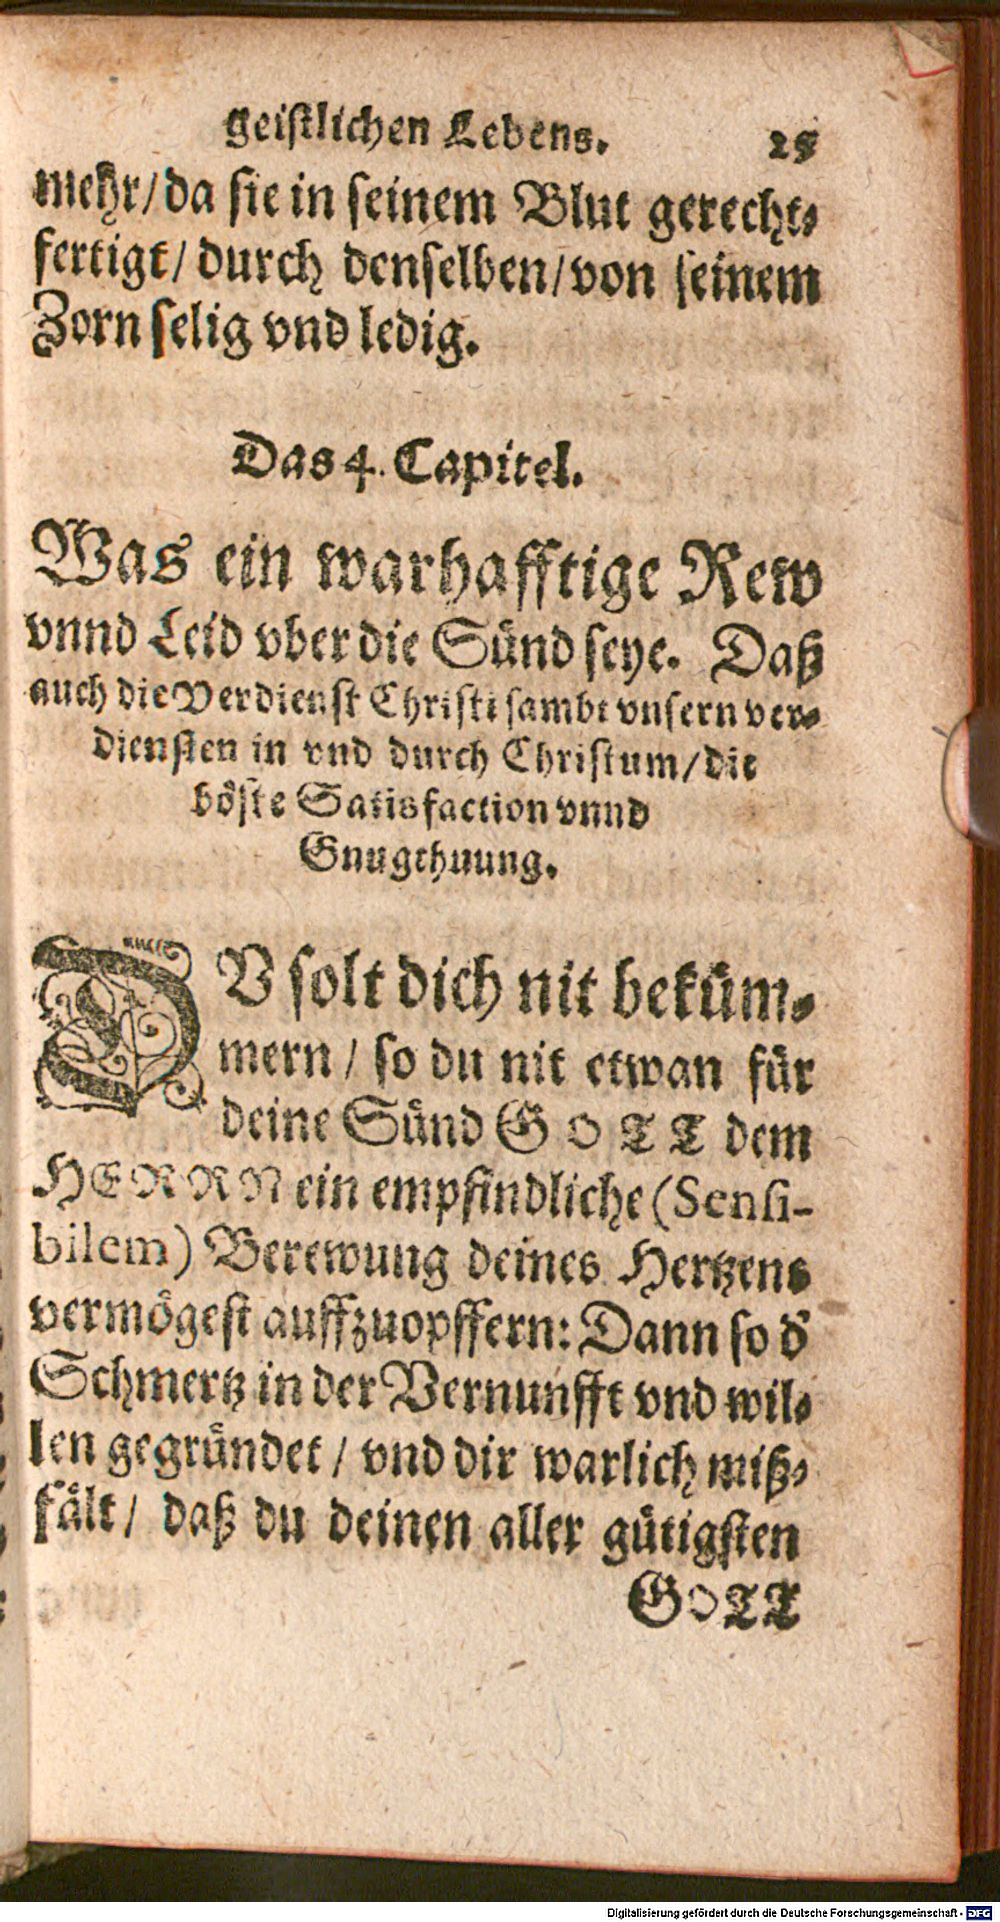 geistlichen Lebens. 25
mehr/ da sie in seinem Blut gerecht⸗
fertigt/ durch denselben/ von seinem
Zorn selig vnd ledig.
Das 4. Capitel.
Was ein warhafftige Rew
vnnd Leid vber die Sünd seye. Daß
auch die Verdienst Christi sambt vnsern ver⸗
diensten in vnd durch Christum/ die
böste Satisfaction vnnd
Gnugthuung.
DV solt dich nit beküm⸗
mern/ so du nit etwan für
deine Sünd GOTT dem
HERRN ein empfindliche (Sensi-
bilem) Berewung deines Hertzens
vermögest auffzuopffern: Dann so d'
Schmertz in der Vernunfft vnd wil⸗
len gegründet/ vnd dir warlich miß⸗
fält/ daß du deinen aller gütigsten
GOTT
Digitalisierung gefördert durch die Deutsche Forschungsgemeinschaft - DFG